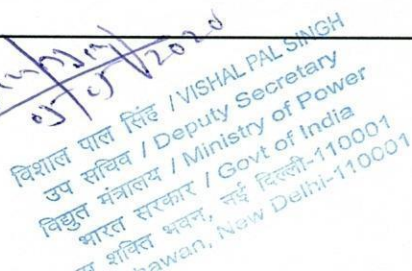 विशाल पाल सिंह / VISHAL PAL SINGH
उप सचिव / Deputy Secretary
विद्युत मंत्रालय / Ministry of Power
भारत सरकार / Govt of India
शक्ति भवन, नई दिल्ली-110001
New Delhi-110001